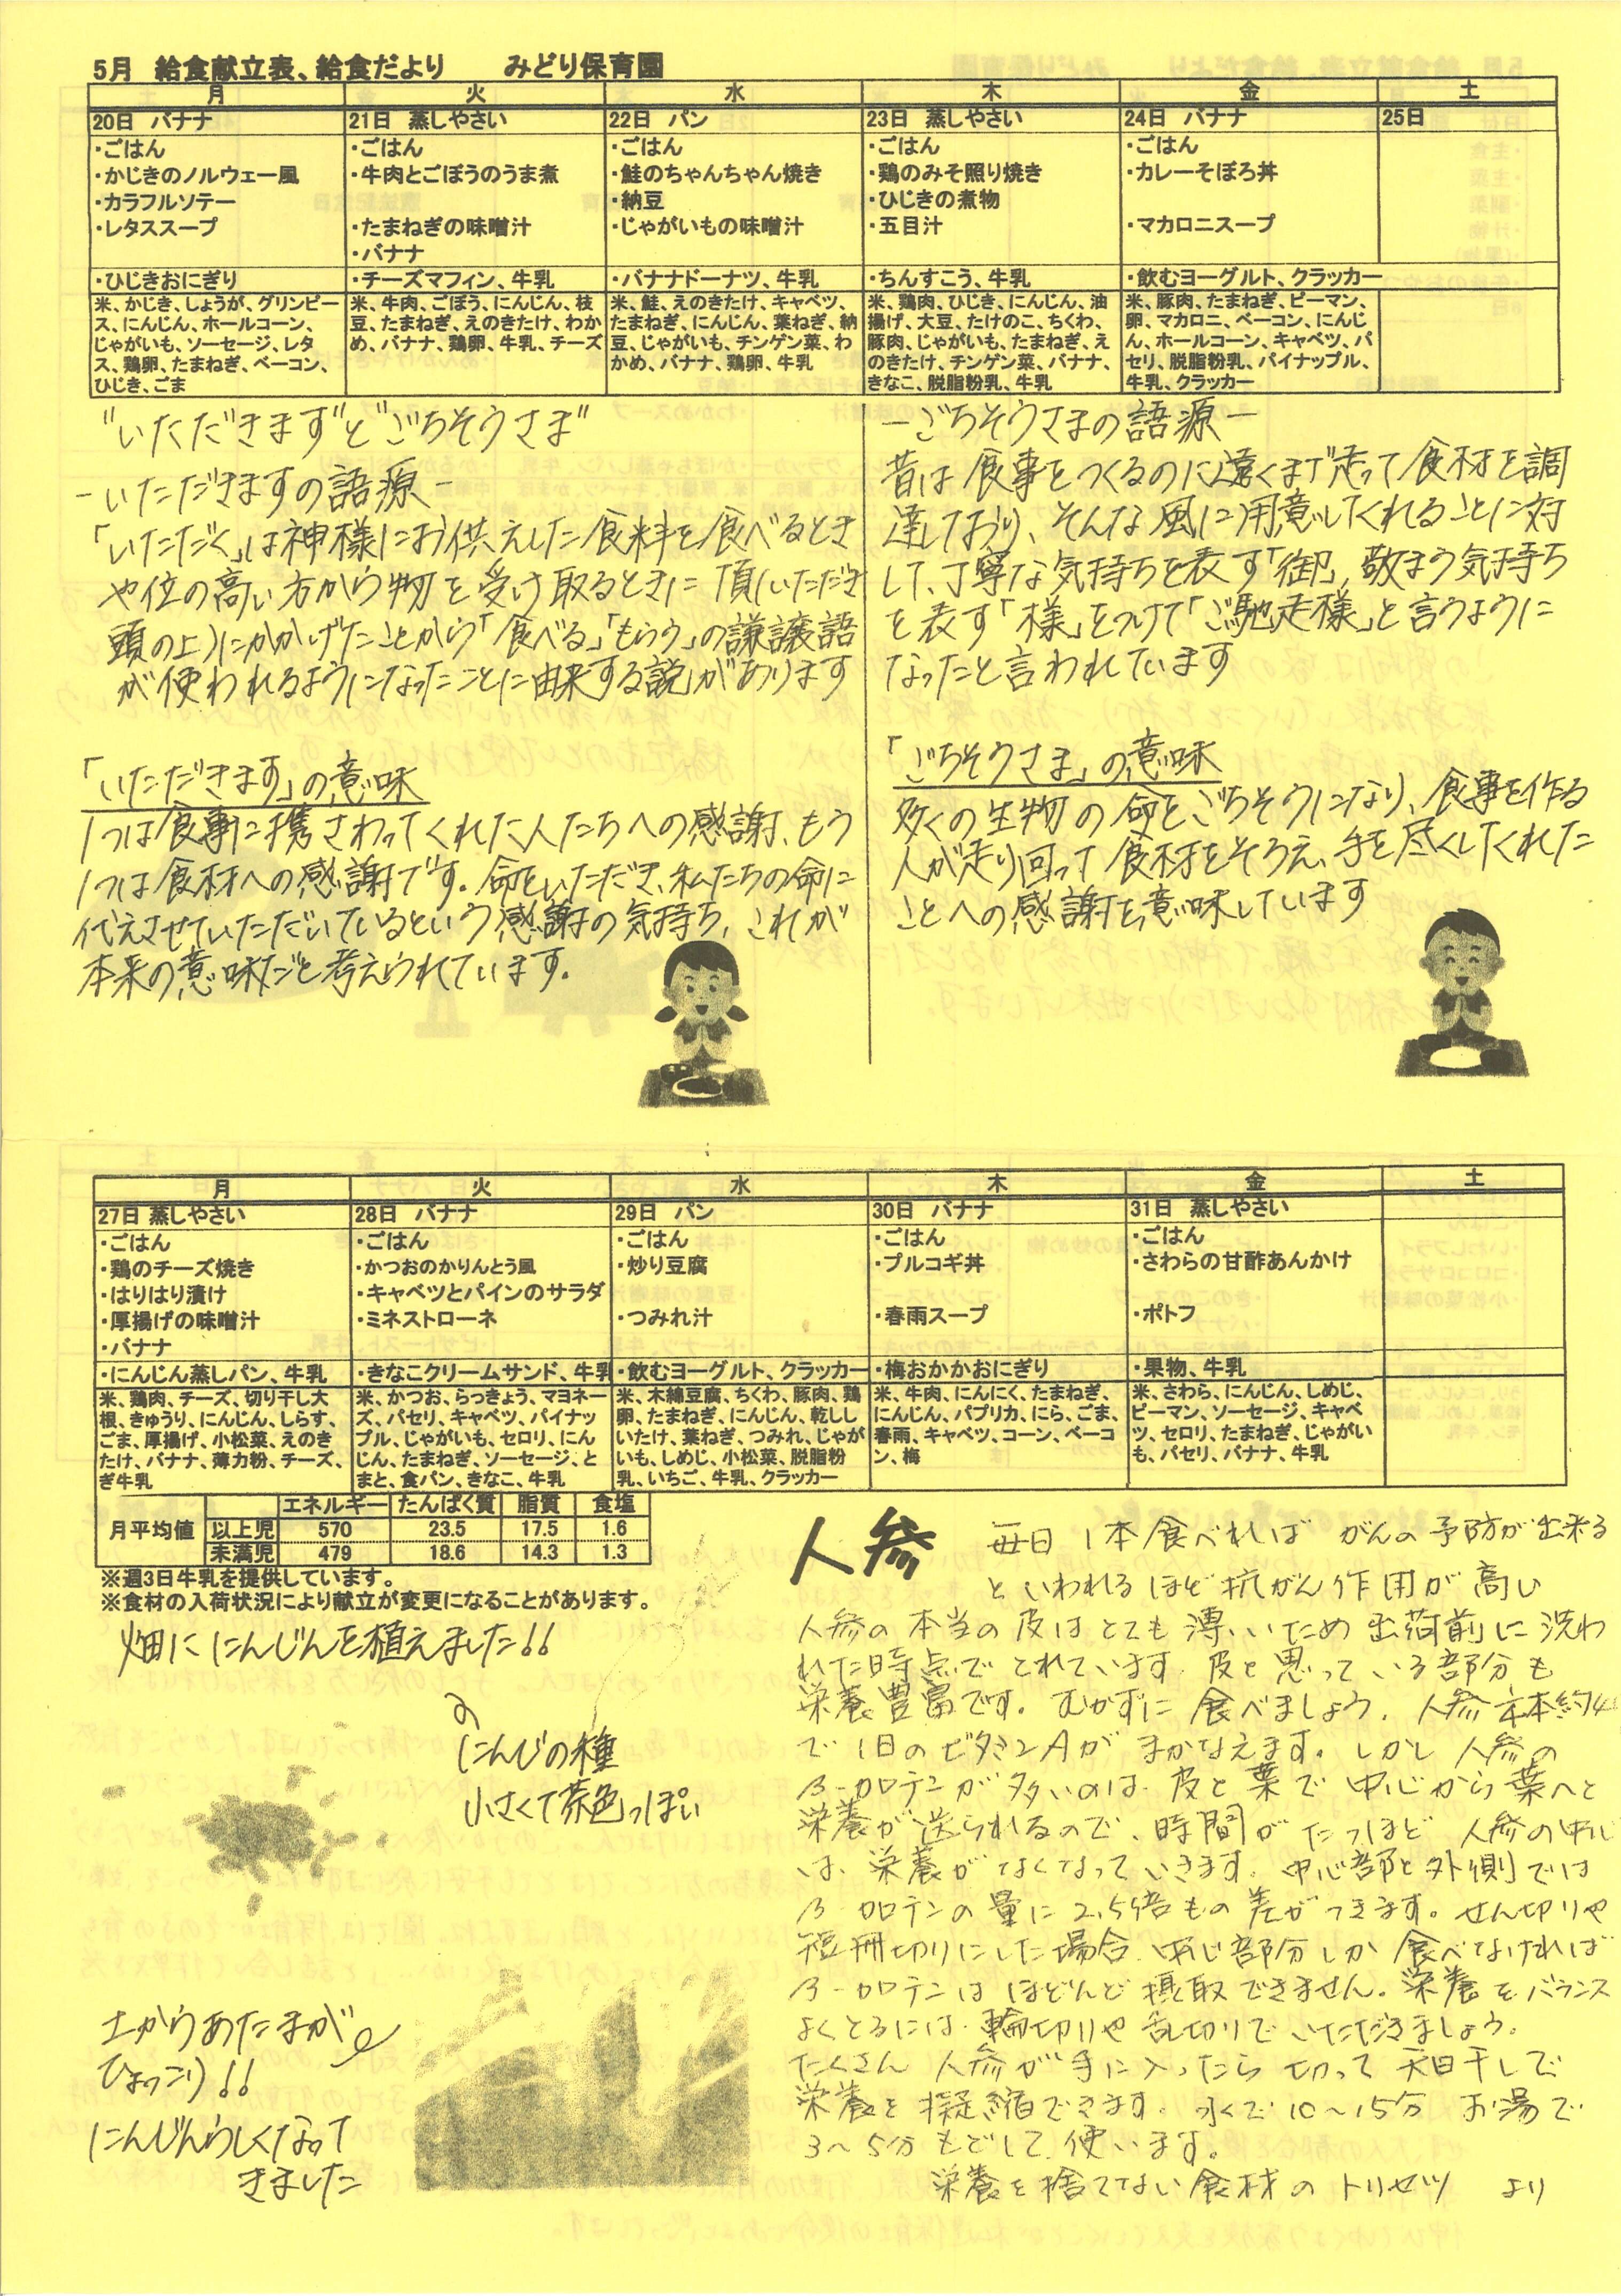 5月　給食献立表、給食だより　　みどり保育園
月　火　水　木　金　土
20日　バナナ
・ごはん
・かじきのノルウェー風
・カラフルソテー
・レタススープ
・ひじきおにぎり
米、かじき、しょうが、グリンピー
ス、にんじん、ホールコーン、
じゃがいも、ソーセージ、レタ
ス、鶏卵、たまねぎ、ベーコン、
ひじき、ごま
21日　蒸しやさい
・ごはん
・牛肉とごぼうのうま煮
・たまねぎの味噌汁
・バナナ
・チーズマフィン、牛乳
米、牛肉、ごぼう、にんじん、枝
豆、たまねぎ、えのきたけ、わか
め、バナナ、鶏卵、牛乳、チーズ
22日　パン
・ごはん
・鮭のちゃんちゃん焼き
・納豆
・じゃがいもの味噌汁
・バナナドーナツ、牛乳
米、鮭、えのきたけ、キャベツ、
たまねぎ、にんじん、葉ねぎ、納
豆、じゃがいも、チンゲン菜、わ
かめ、バナナ、鶏卵、牛乳
23日　蒸しやさい
・ごはん
・鶏のみそ照り焼き
・ひじきの煮物
・五目汁
・ちんすこう、牛乳
米、鶏肉、ひじき、にんじん、油
揚げ、大豆、たけのこ、ちくわ、
豚肉、じゃがいも、たまねぎ、え
のきたけ、チンゲン菜、バナナ、
きなこ、脱脂粉乳、牛乳
24日　バナナ
・ごはん
・カレーそぼろ丼
・マカロニスープ
・飲むヨーグルト、クラッカー
米、豚肉、たまねぎ、ピーマン、
卵、マカロニ、ベーコン、にんじ
ん、ホールコーン、キャベツ、パ
セリ、脱脂粉乳、パイナップル、
牛乳、クラッカー
25日
"いただきます"と"ごちそうさま"
-いただきますの語源-
「いただく」は神様にお供えした食料を食べるとき
や位の高い方から物を受け取るときに頂(いただき
頭の上)にかかげたことから「食べる」「もらう」の謙譲語
が使われるようになったことに由来する説があります
「いただきます」の意味
1つは食事に携さわってくれた人たちへの感謝、もう
1つは食材への感謝です。命をいただき、私たちの命に
代えさせていただいているという感謝の気持ち、これが
本来の意味だと考えられています。
-ごちそうさまの語源-
昔は食事をつくるのに遠くまで走って食材を調
達しており、そんな風に用意してくれることに対
して、丁寧な気持ちを表す「御」、敬まう気持ち
を表す「様」をつけて「ご馳走様」と言うように
なったと言われています
「ごちそうさま」の意味
多くの生物の命をごちそうになり、食事を作る
人が走り回って食材をそろえ、手を尽くしてくれた
ことへの感謝を意味しています
月　火　水　木　金　土
27日 蒸しやさい
・ごはん
・鶏のチーズ焼き
・はりはり漬け
・厚揚げの味噌汁
・バナナ
・にんじん蒸しパン、牛乳
米、鶏肉、チーズ、切り干し大
根、きゅうり、にんじん、しらす、
ごま、厚揚げ、小松菜、えのき
たけ、バナナ、薄力粉、チーズ、
ぎ牛乳
28日　バナナ
・ごはん
・かつおのかりんとう風
・キャベツとパインのサラダ
・ミネストローネ
・きなこクリームサンド、牛乳
米、かつお、らっきょう、マヨネー
ズ、パセリ、キャベツ、パイナッ
プル、じゃがいも、セロリ、にん
じん、たまねぎ、ソーセージ、と
まと、食パン、きなこ、牛乳
29日　パン
・ごはん
・炒り豆腐
・つみれ汁
・飲むヨーグルト、クラッカー
米、木綿豆腐、ちくわ、豚肉、鶏
卵、たまねぎ、にんじん、乾しし
いたけ、葉ねぎ、つみれ、じゃが
いも、しめじ、小松菜、脱脂粉
乳、いちご、牛乳、クラッカー
30日　バナナ
・ごはん
・プルコギ丼
・春雨スープ
・梅おかかおにぎり
米、牛肉、にんにく、たまねぎ、
にんじん、パプリカ、にら、ごま、
春雨、キャベツ、コーン、ベーコ
ン、梅
31日　蒸しやさい
・ごはん
・さわらの甘酢あんかけ
・ポトフ
・果物、牛乳
米、さわら、にんじん、しめじ、
ピーマン、ソーセージ、キャベ
ツ、セロリ、たまねぎ、じゃがい
も、パセリ、バナナ、牛乳
エネルギー　たんぱく質　脂質　食塩
月平均値　以上児　570　23.5　17.5　1.6
未満児　479　18.6　14.3　1.3
※週3日牛乳を提供しています。
※食材の入荷状況により献立が変更になることがあります。
畑ににんじんを植えました!!
にんじの種
小さくて茶色っぽい
土からあたまが
ひょっこり!!
にんじんらしくなって
きました
人参
毎日1本食べれば がんの予防が出来る
といわれるほど抗がん作用が高い
人参の本当の皮はとても薄いため出荷前に洗わ
れた時点でとれています。皮と思っている部分も
栄養豊富です。むかずに食べましょう。人参 本約
で1日のビタミンAがまかなえます。しかし人参の
β-カロテンが多いのは、皮と葉で中心から葉へと
栄養が送られるので、時間がたつほど 人参の中心
は、栄養がなくなっていきます。中心部と外側では
β-カロテンの量に2.5倍もの差がつきます。せん切りや
短冊切りにした場合、中心部分しか食べなければ
β-カロテンはほどんど摂取できません。栄養をバランス
よくとるには、輪切りや乱切りでいただきましょう。
たくさん人参が手に入ったら切って天日干しで
栄養を凝縮できます。水で10〜15分 お湯で
3〜5分もどして使います。
栄養を捨てない食材のトリセツ　より